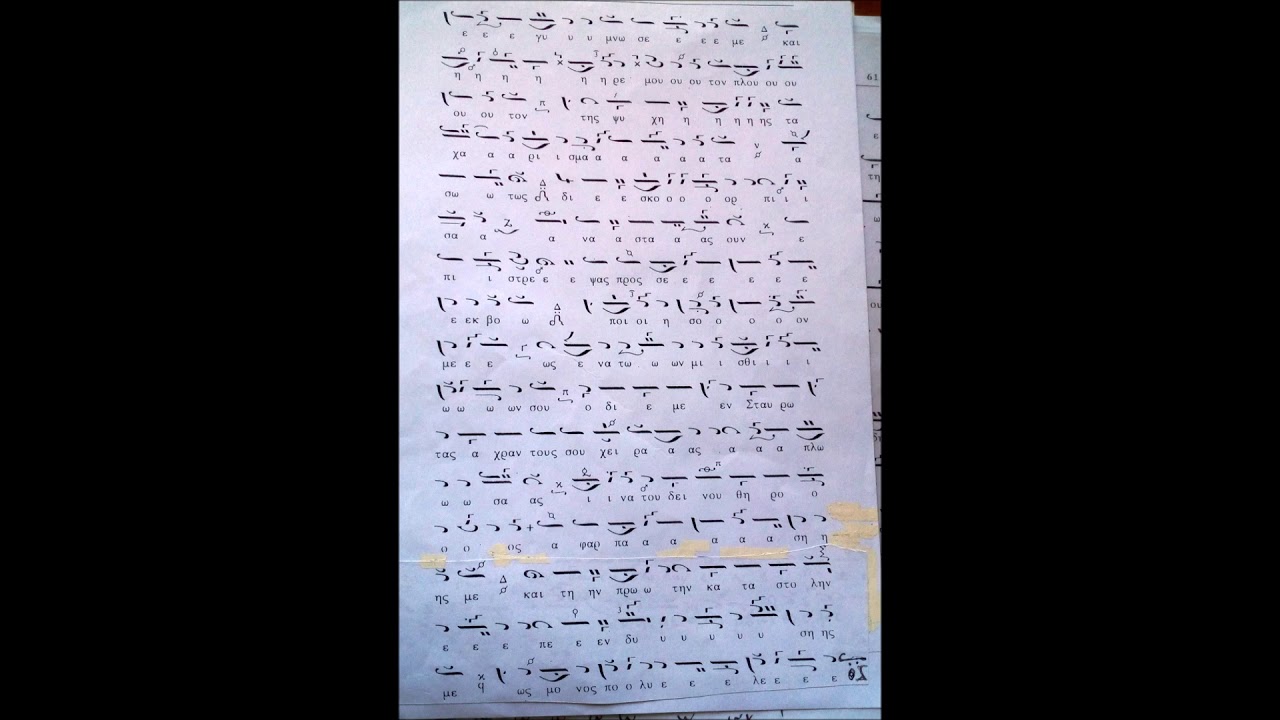 ε ε ε γυ υ υ μνω σε ε ε ε με Δ και
η η η η η η ρε μου ου ου τον πλου ου ου
ου ου τον π της ψυ χη η η η η ης τα
χα α α ρι ι σμα α α α α α τα ν α
σω ω τως Δ δι ε ε σκο ο ο ο ορ πι ι ι
σα α Ζ α να α στα α ας ουν x ε
πι ι στρε ε ε ψας προς σε ε ε ε ε ε
ε εκ βο ω Δ ποι οι η σο ο ο ο ον
με ε ε Γ ως ε να τω ω ων μι ι σθι ι ι ι
ω ω ω ων σου π ο δι ε με εν Σταυ ρω
τας α χραν τους σου χει ρα α ας α α α πλω
ω ω σα ας x ι ι να του δει νου θη ρο ο
ο ο ος α φαρ πα α α α α α ση η
ης με Δ και τη ην πρω ω την κα τα στο λην
ε ε ε πε ε εν δυ υ υ υ υ υ ση ης
με x q ως μο νος πο ο λυ ε ε ε λε ε ε ε
61
ε
τη
ω
ου